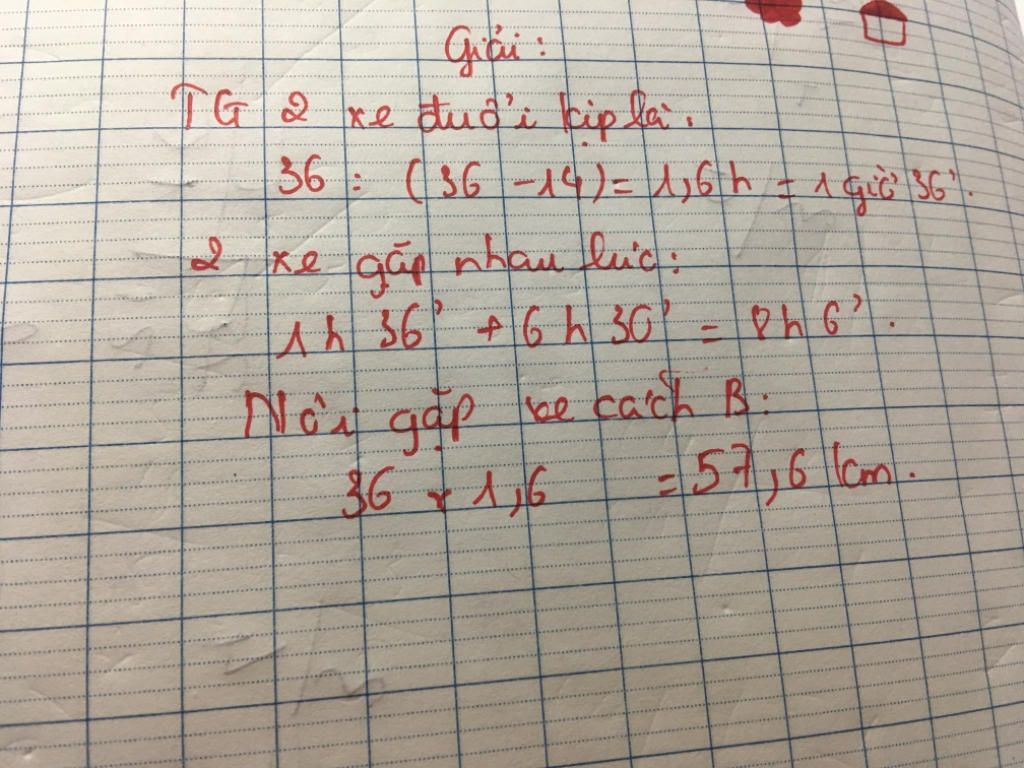 Giải:
TG 2 xe đuổi kịp là.
36 : (36 - 14) = 1,6 h = 1 giờ 36'.
2 xe gặp nhau lúc:
1h 36' + 6h 30' = 8h 6'.
Nơi gặp xe cách B:
36 x 1,6 = 57,6 km.